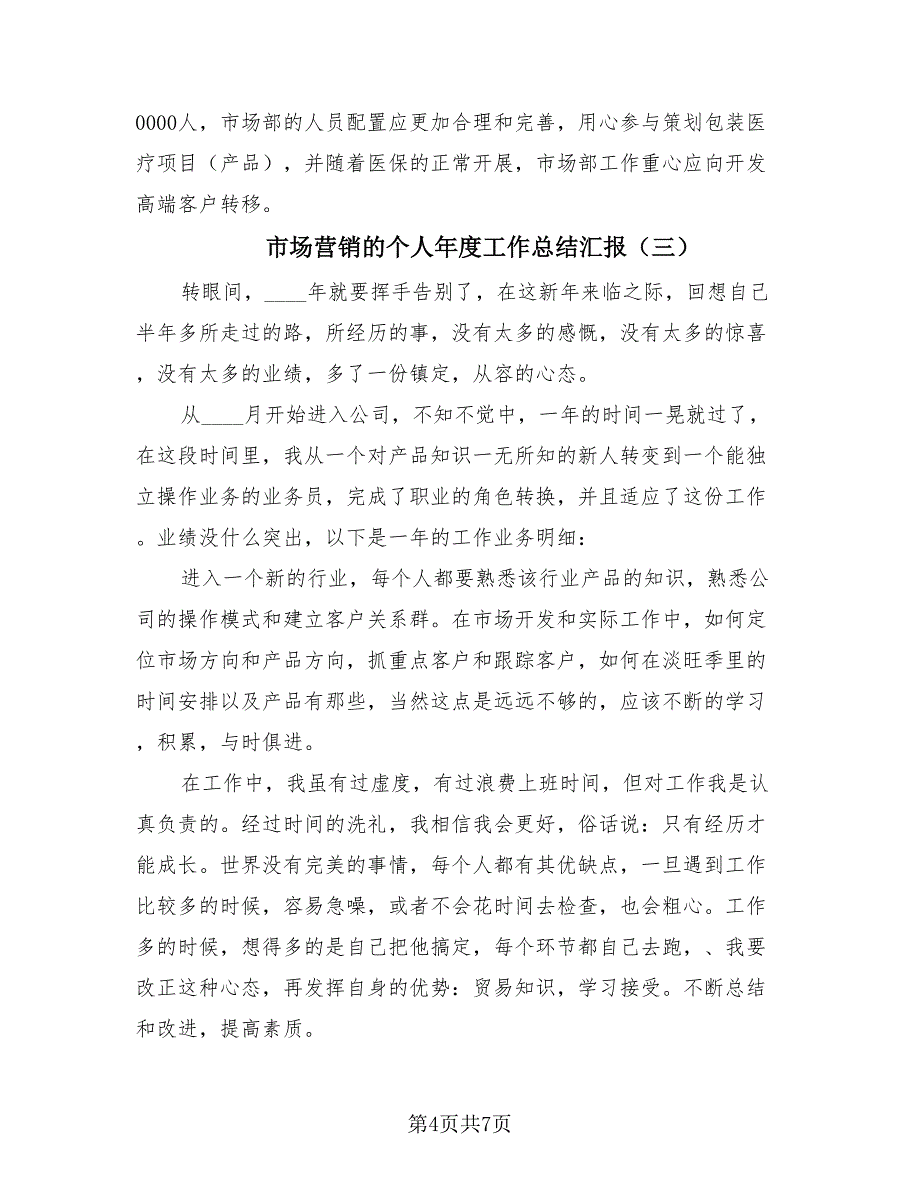 0000人，市场部的人员配置应更加合理和完善，用心参与策划包装医
疗项目（产品），并随着医保的正常开展，市场部工作重心应向开发
高端客户转移。
市场营销的个人年度工作总结汇报（三）
转眼间，____年就要挥手告别了，在这新年来临之际，回想自己
半年多所走过的路，所经历的事，没有太多的感慨，没有太多的惊喜
，没有太多的业绩，多了一份镇定，从容的心态。
从____月开始进入公司，不知不觉中，一年的时间一晃就过了，
在这段时间里，我从一个对产品知识一无所知的新人转变到一个能独
立操作业务的业务员，完成了职业的角色转换，并且适应了这份工作
。业绩没什么突出，以下是一年的工作业务明细：
进入一个新的行业，每个人都要熟悉该行业产品的知识，熟悉公
司的操作模式和建立客户关系群。在市场开发和实际工作中，如何定
位市场方向和产品方向，抓重点客户和跟踪客户，如何在淡旺季里的
时间安排以及产品有那些，当然这点是远远不够的，应该不断的学习
，积累，与时俱进。
在工作中，我虽有过虚度，有过浪费上班时间，但对工作我是认
真负责的。经过时间的洗礼，我相信我会更好，俗话说：只有经历才
能成长。世界没有完美的事情，每个人都有其优缺点，一旦遇到工作
比较多的时候，容易急噪，或者不会花时间去检查，也会粗心。工作
多的时候，想得多的是自己把他搞定，每个环节都自己去跑，、我要
改正这种心态，再发挥自身的优势：贸易知识，学习接受。不断总结
和改进，提高素质。
第4页共7页